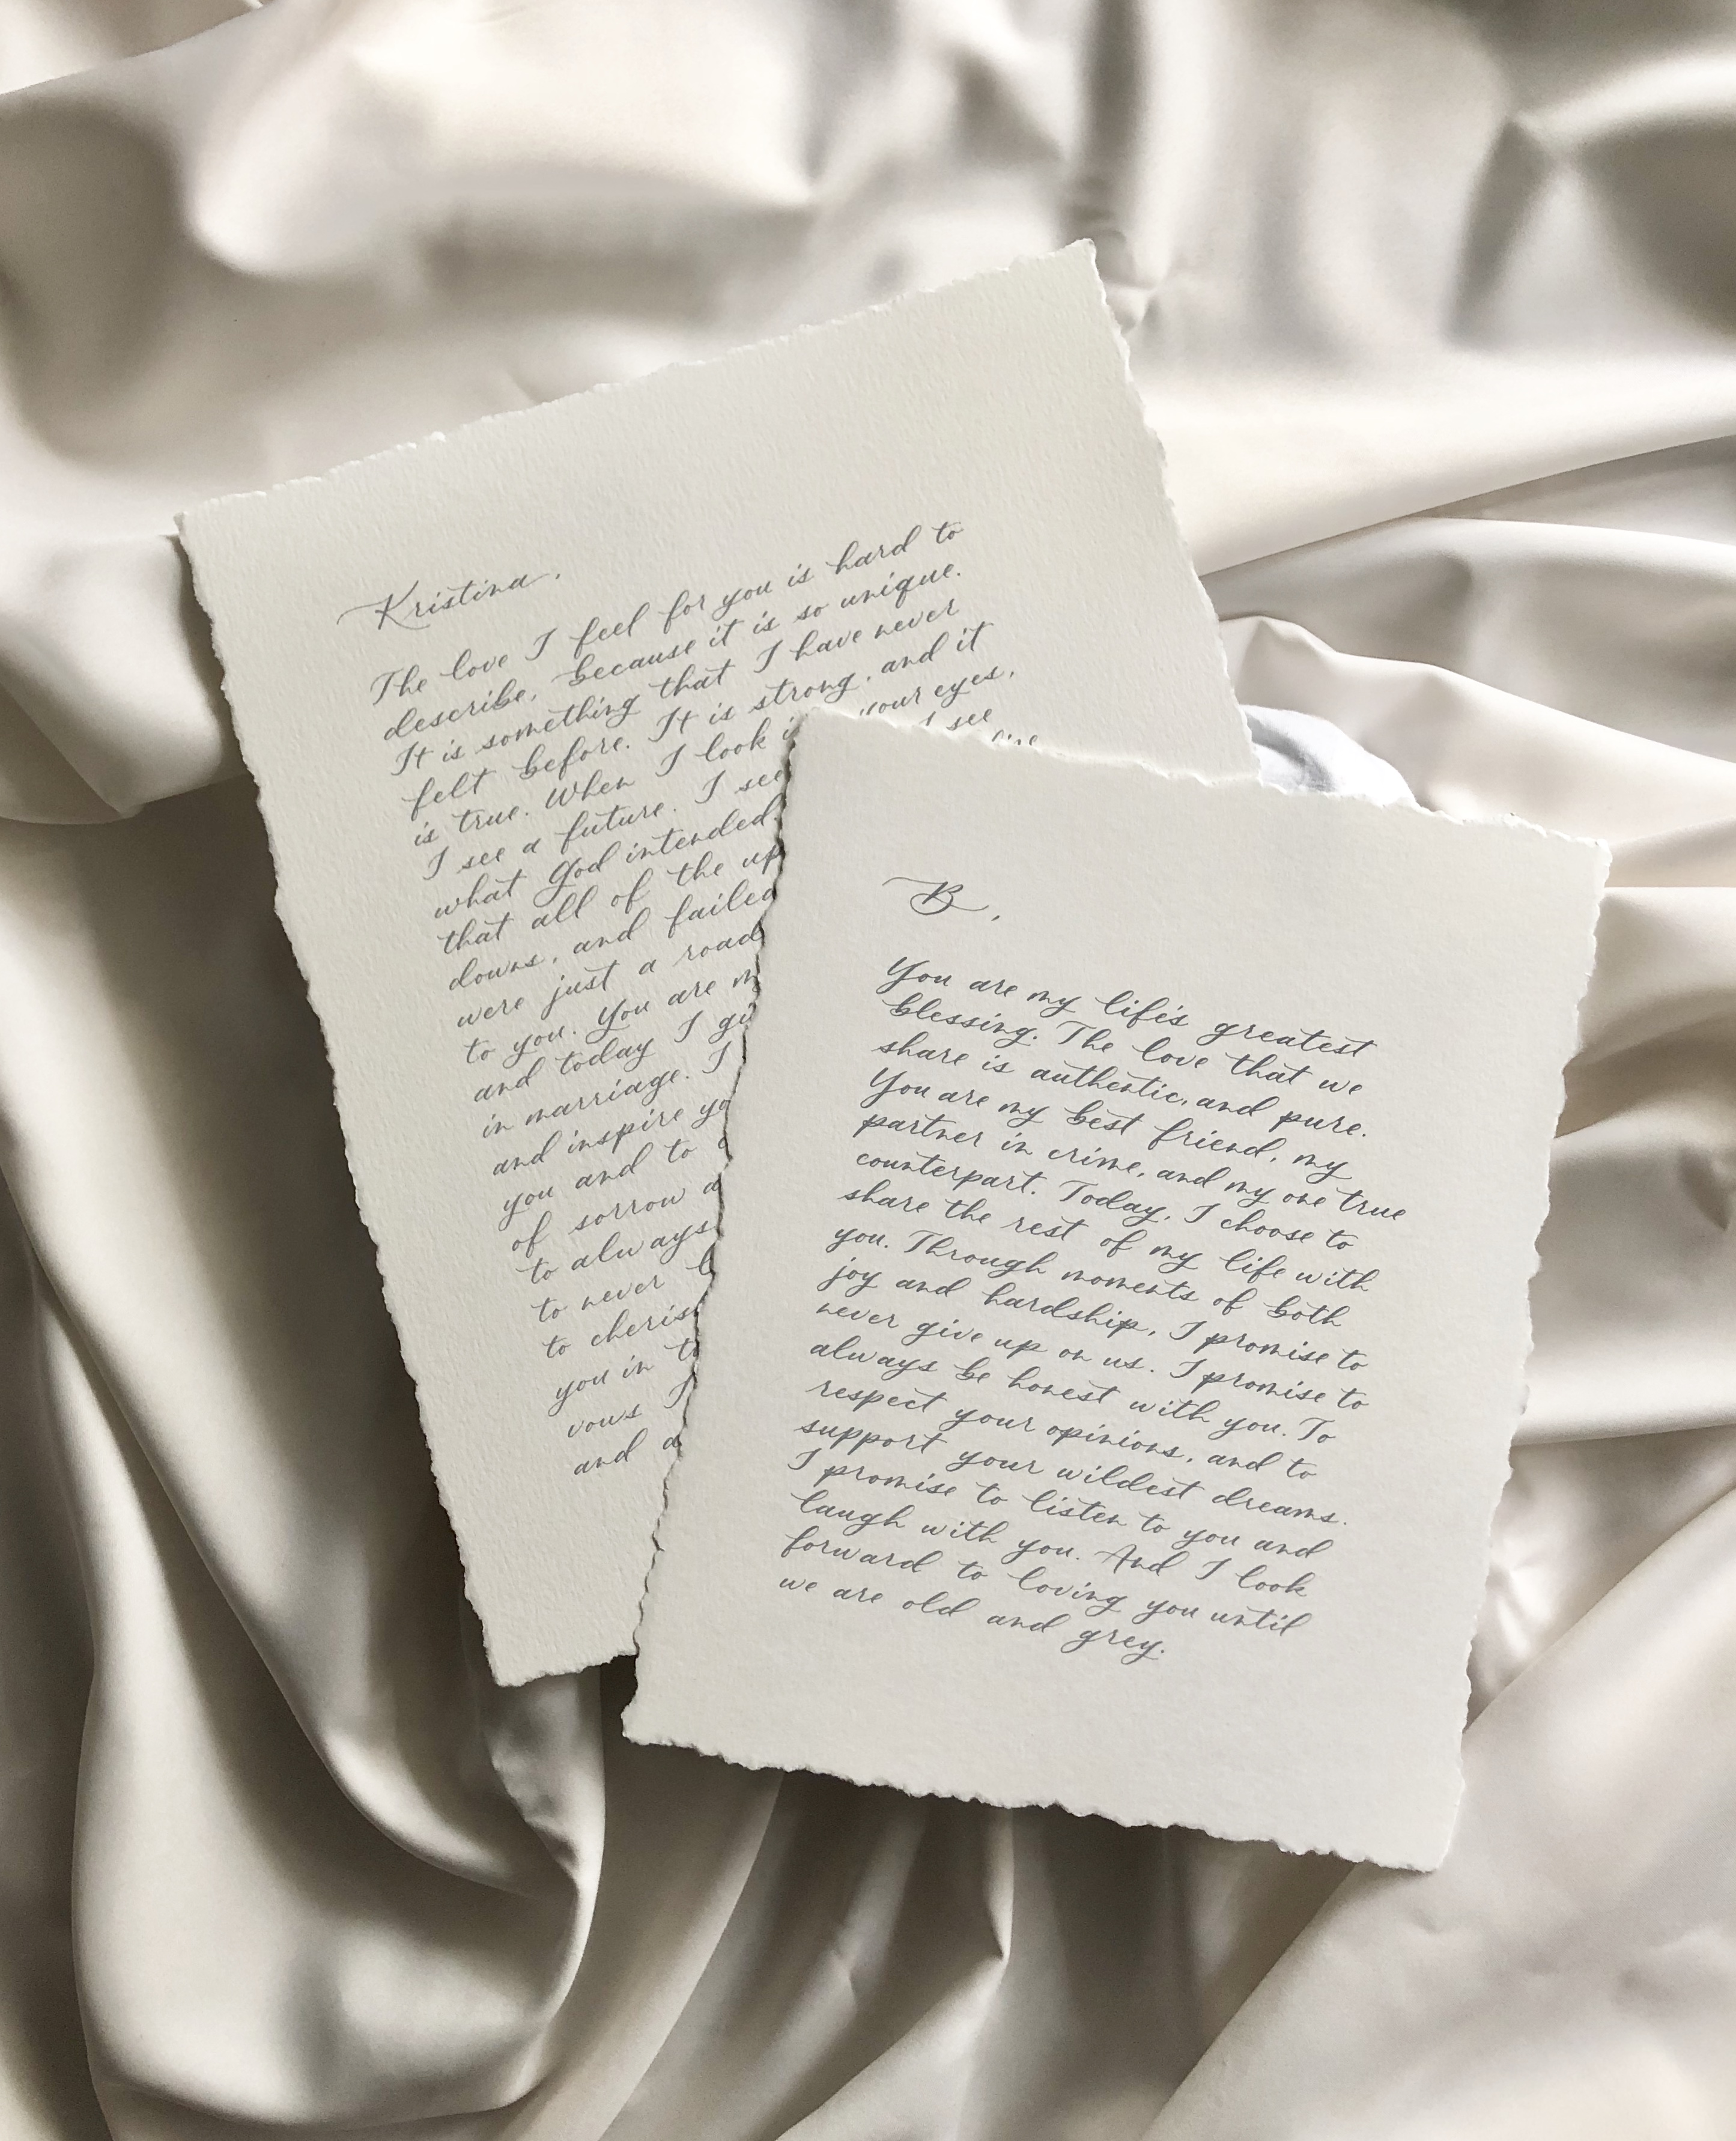 Kristina,
The love I feel for you is hard to
describe, because it is so unique.
It is something that I have never
felt before. It is strong, and it
is true. When I look your eyes,
I see a future. I see I see
what God intended.
that all of the
downs, and failed
were just a road
to you. You are
and today I
in marriage. I
and inspire
you and to
of sorrow
to always
to never
to cheris
you in
vows I
and
B,
You are my life's greatest
blessing. The love that we
share is authentic, and pure.
You are my best friend, my
partner in crime, and my one true
counterpart. Today, I choose to
share the rest of my life with
you. Through moments of both
joy and hardship, I promise to
never give up on us. I promise to
always be honest with you. To
respect your opinions, and to
support your wildest dreams.
I promise to listen to you and
laugh with you. And I look
forward to loving you until
we are old and grey.